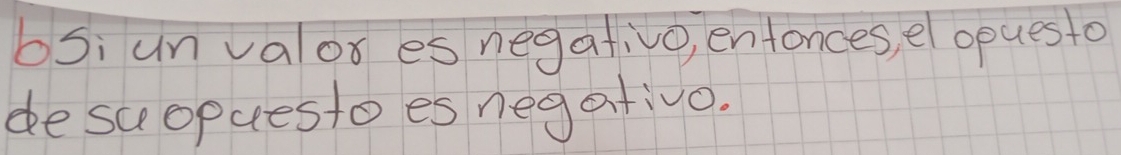 b Si un valor es negativo, entonces, el opuesto
de su opuesto es negativo.